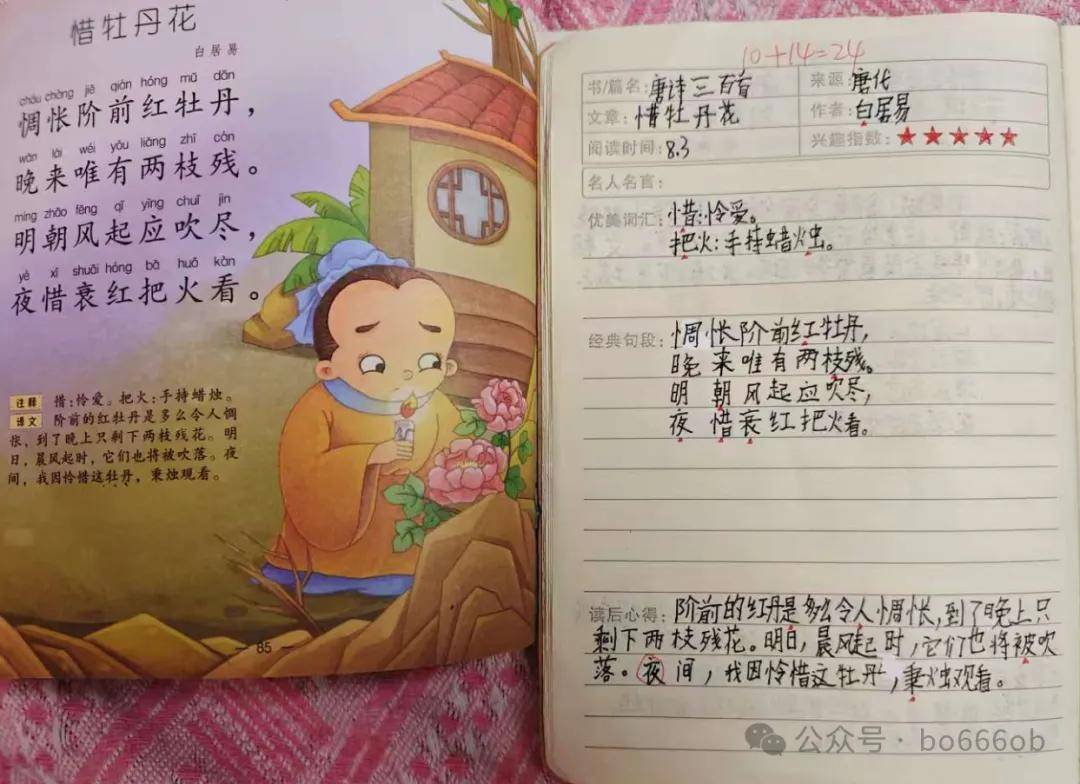 惜牡丹花
白居易
chóu chàng jiē qián hóng mǔ dān
惆怅阶前红牡丹，
wǎn lái wéi yǒu liǎng zhī cán
晚来唯有两枝残。
míng zhāo fēng qǐ yīng chuī jìn
明朝风起应吹尽，
yè xī shuāi hóng bǎ huǒ kàn
夜惜衰红把火看。
注释 惜：怜爱。把火：手持蜡烛。
译文 阶前的红牡丹是多么令人惆
怅，到了晚上只剩下两枝残花。明
日，晨风起时，它们也将被吹落。夜
间，我因怜惜这牡丹，秉烛观看。
— 85 —
10+14=24
书/篇名：唐诗三百首 来源：唐代
文章：惜牡丹花 作者：白居易
阅读时间：8.3 兴趣指数：★★★★★
名人名言：
优美词汇：惜：怜爱。
把火：手持蜡烛。
经典句段：惆怅阶前红牡丹，
晚来唯有两枝残。
明朝风起应吹尽，
夜惜衰红把火看。
读后心得：阶前的红丹是多么令人惆怅，到了晚上只
剩下两枝残花。明日，晨风起时，它们也将被吹
落。夜间，我因怜惜这牡丹，秉烛观看。
公众号·bo666ob